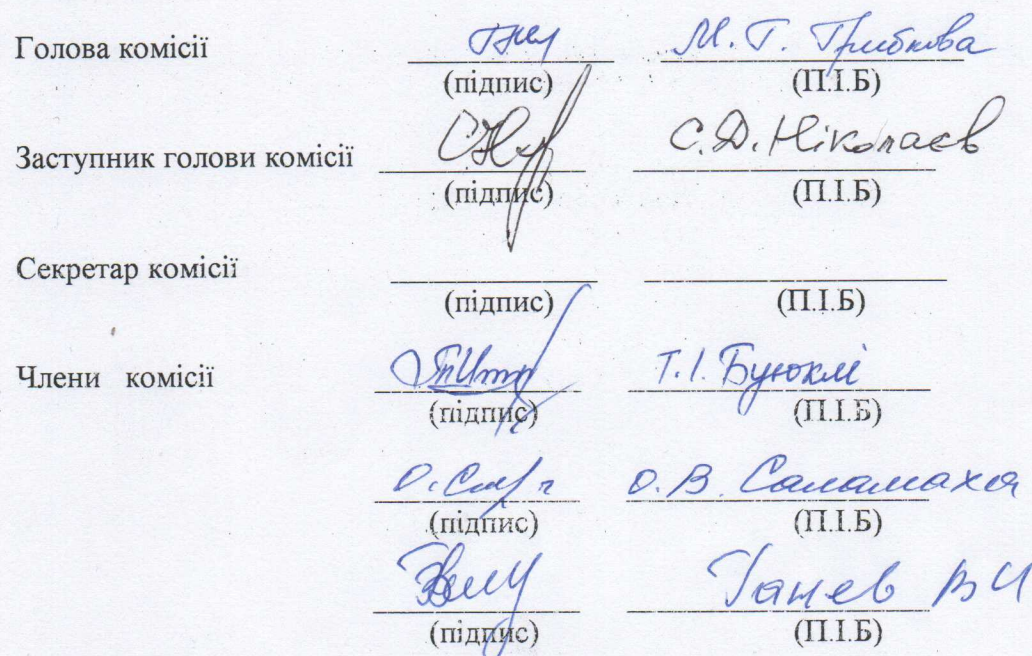 Голова комісії М. Г. Грибкова
(підпис) (П.І.Б)
Заступник голови комісії С.Д. Ніколаєв
(підпис) (П.І.Б)
Секретар комісії
(підпис) (П.І.Б)
Члени комісії Т.І. Буюклі
(підпис) (П.І.Б)
О.В. Саламаха
(підпис) (П.І.Б)
Ганев В И
(підпис) (П.І.Б)